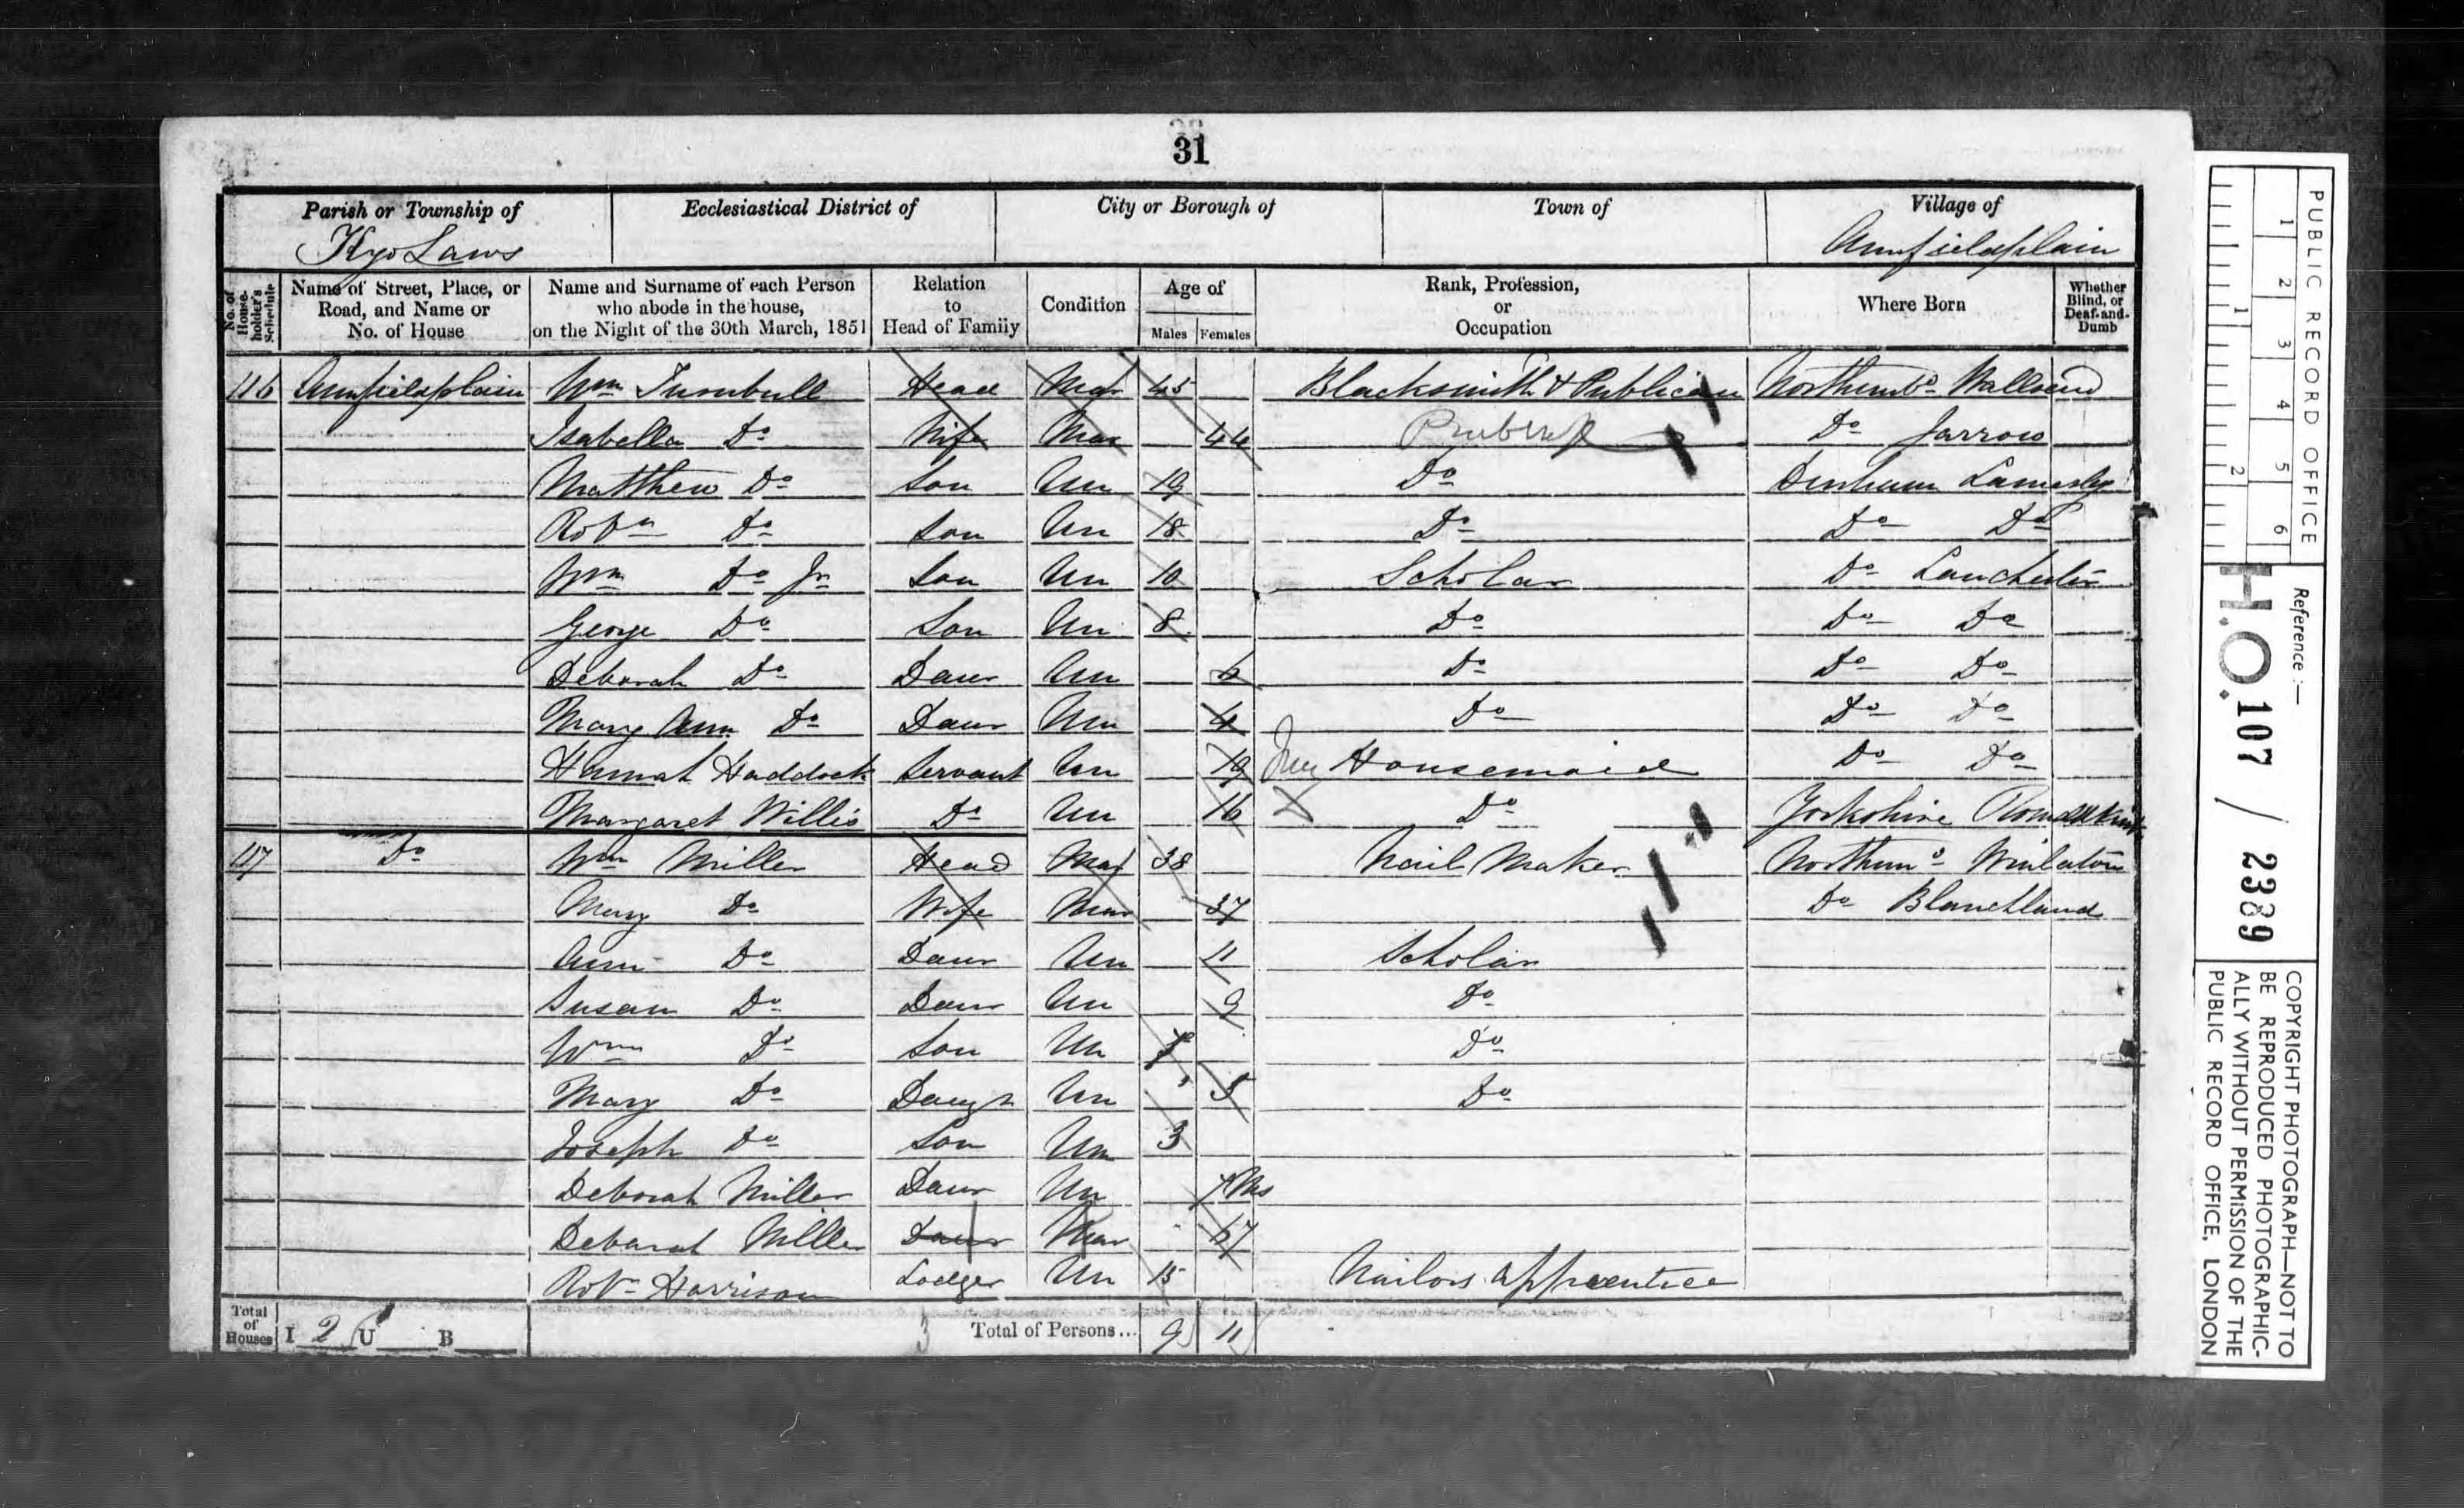 31
Parish or Township of Ecclesiastical District of City or Borough of Town of Village of
Kyo Laws Annfieldplain
No. of House-holder's Schedule Name of Street, Place, or Road, and Name or No. of House Name and Surname of each Person who abode in the house, on the Night of the 30th March, 1851 Relation to Head of Family Condition Age of Males Females Rank, Profession, or Occupation Where Born Whether Blind, or Deaf-and-Dumb
116 Annfieldplain Wm Turnbull Head Mar 45 Blacksmith & Publican Northumbd Wallsend
Isabella Do Wife Mar 44 Do Jarrow
Matthew Do Son Un 19 Do Durham Lamesley
Robt Do Son Un 18 Do Do Do
Wm Do Jr Son Un 10 Scholar Do Lanchester
George Do Son Un 8 Do Do Do
Deborah Do Daur Un 6 Do Do Do
Mary Ann Do Daur Un 4 Do Do Do
Hannah Haddock Servant Un 19 Housemaid Do Do
Margaret Willis Do Un 16 Do Yorkshire
117 Do Wm Miller Head Mar 38 Nail Maker Northumd Winlaton
Mary Do Wife Mar 37 Do Blanchland
Ann Do Daur Un 11 Scholar
Susan Do Daur Un 9 Do
Wm Do Son Un 7 Do
Mary Do Daugr Un 5 Do
Joseph Do Son Un 3
Deborah Miller Daur Un 7 Ms
Deborah Miller Daur Mar 67
Robt Harrison Lodger Un 15 Nailors Apprentice
Total of Houses I 2 U B Total of Persons... 9 11
PUBLIC RECORD OFFICE
1 2 3 4 5 6
1 2
Reference:-
H.O. 107 / 2389
COPYRIGHT PHOTOGRAPH—NOT TO
BE REPRODUCED PHOTOGRAPHIC-
ALLY WITHOUT PERMISSION OF THE
PUBLIC RECORD OFFICE, LONDON